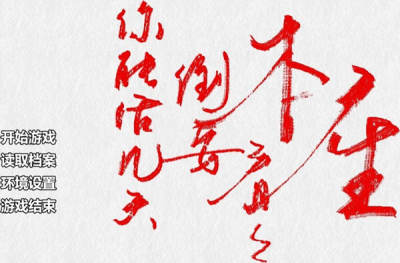 本座
倒要看看
你能活几天
开始游戏
读取档案
环境设置
游戏结束